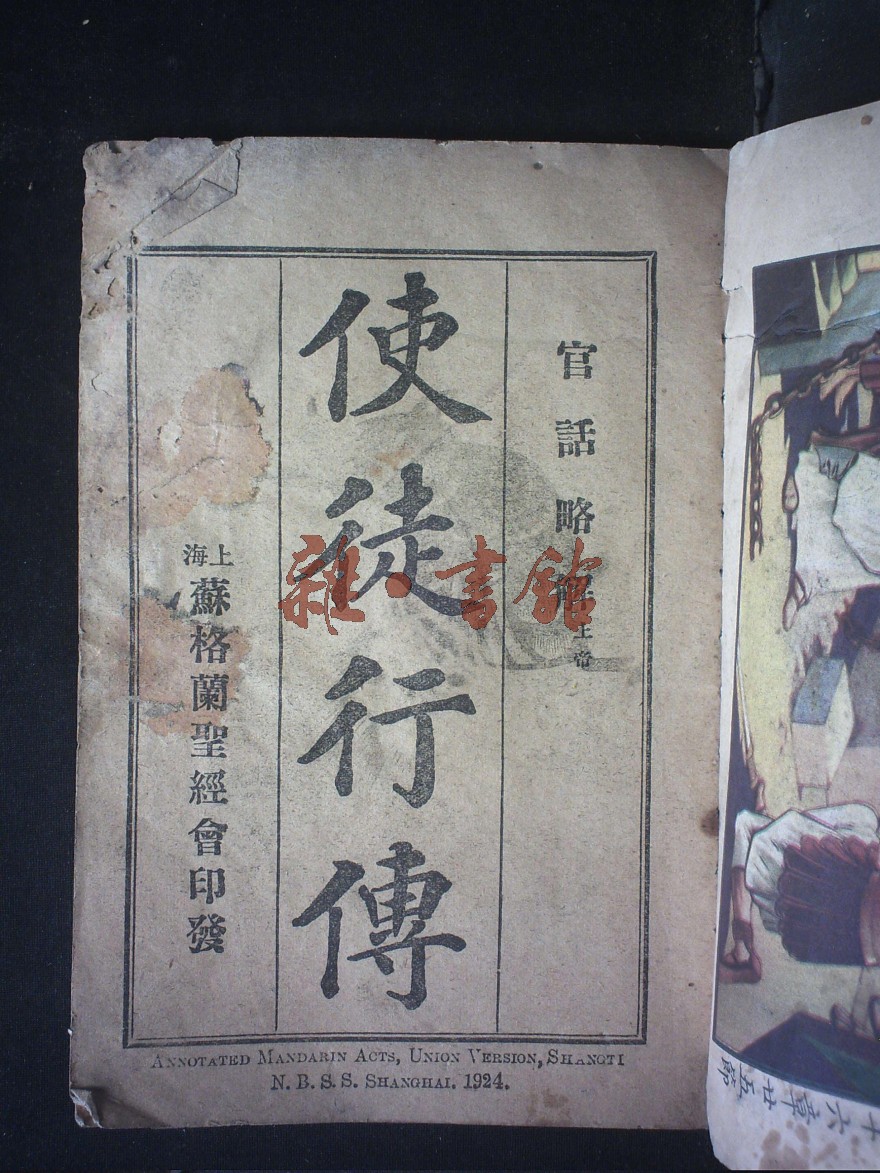 官話略解 上帝
使徒行傳
上海
蘇格蘭聖經會印發
ANNOTATED MANDARIN ACTS, UNION VERSION, SHANGTI
N. B. S. S. SHANGHAI. 1924.
雜·書館
十六章廿五節